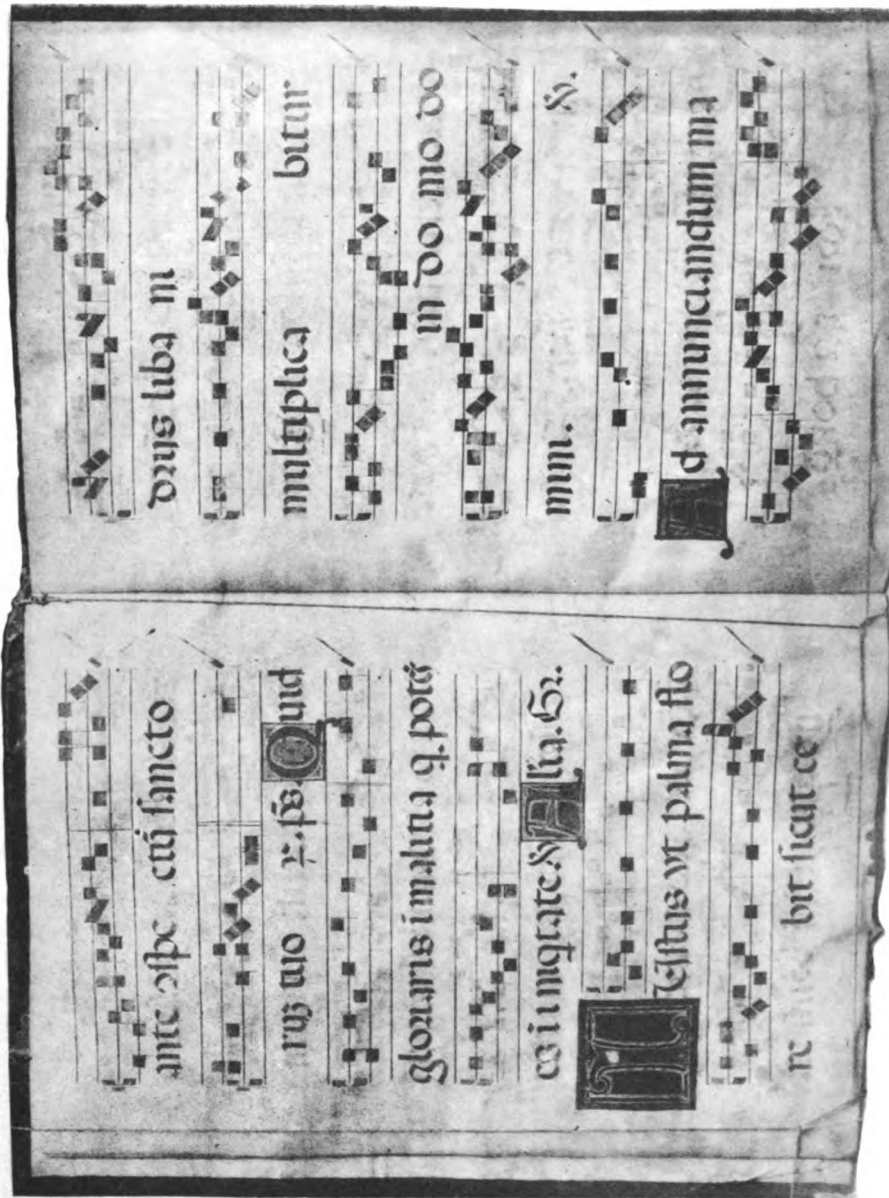 ante ɔspc ctū sancto
rūȝ tuo ps. Quid
gloriaris i malitia q̄ potē
es i iniqtate ℣ Alia. Gr.
Iustus vt palma flo
re bit sicut ce
drus liba ni
multiplica bitur
in do mo do
mini. ℣.
Ad annunciandum ma